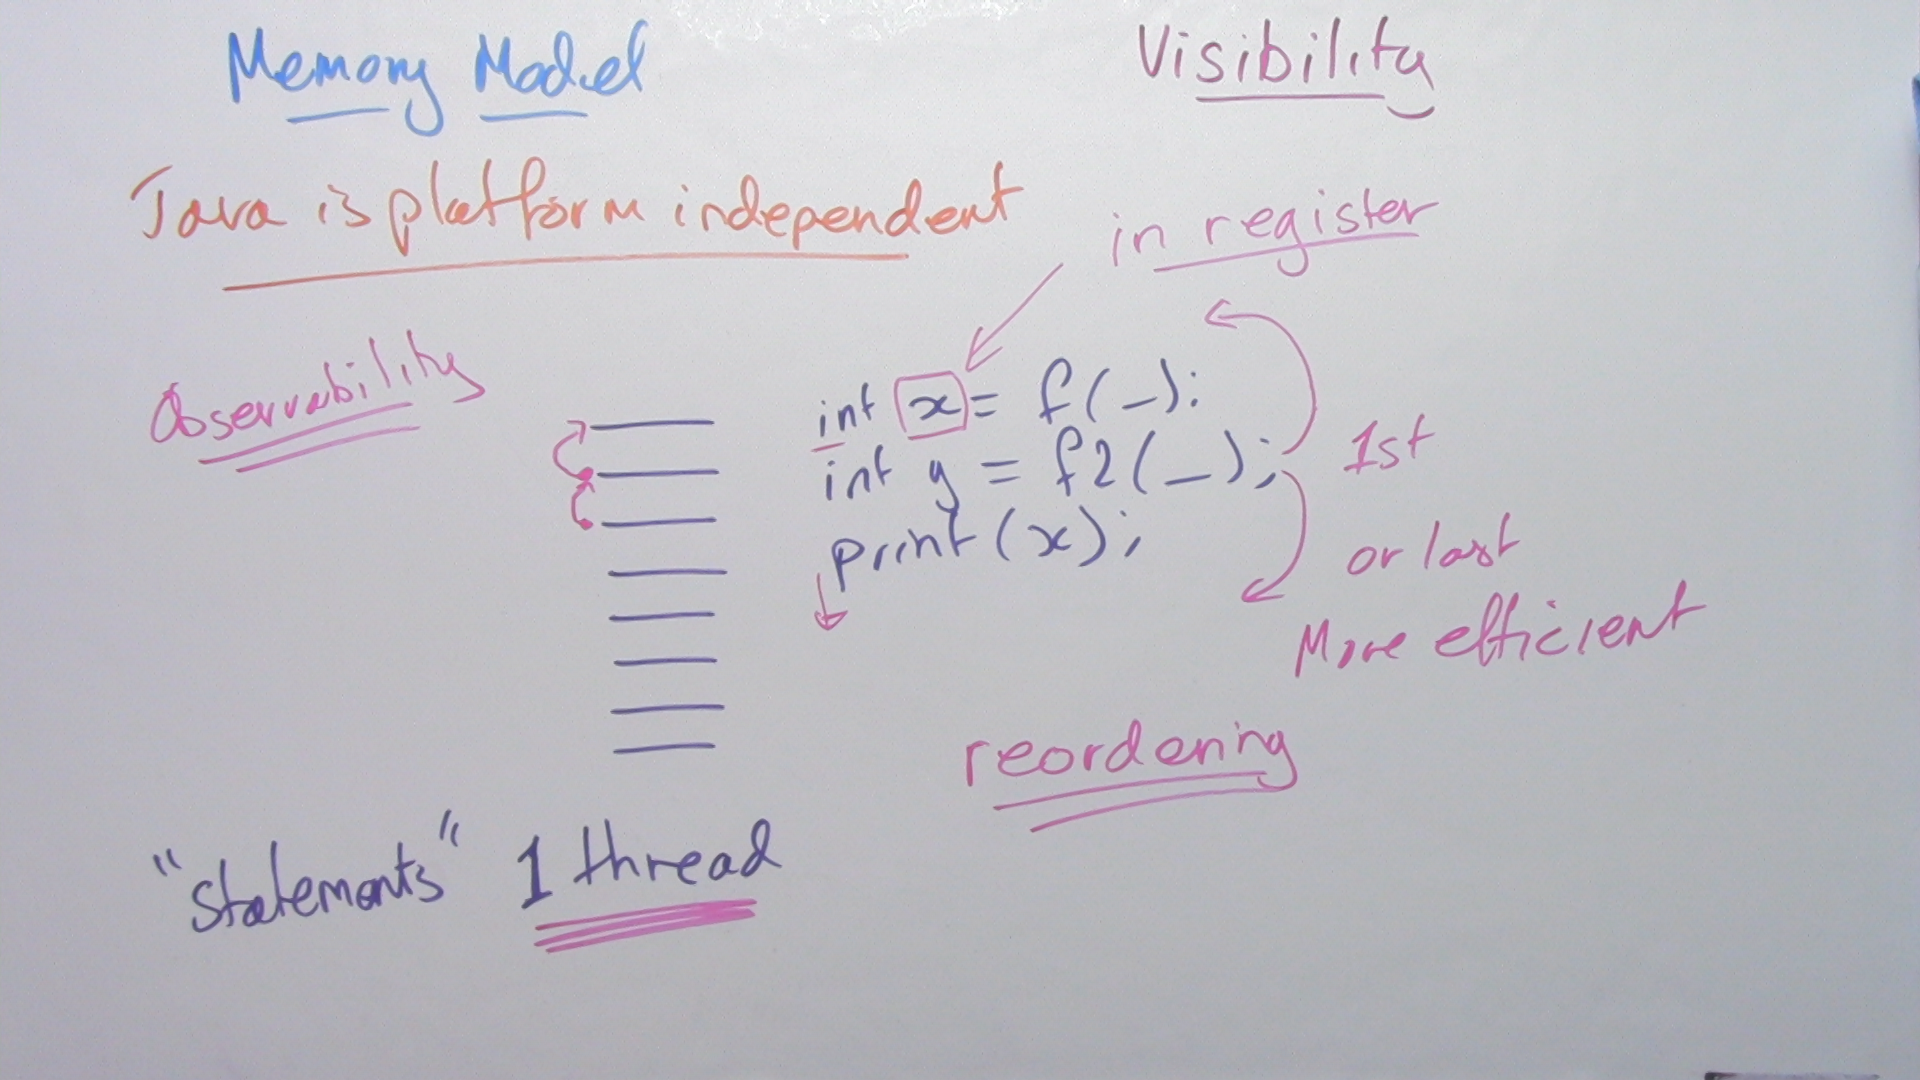 Memory Model
Visibility
Java is platform independent
in register
Observability
int x = f(_);
int y = f2(_);
print(x);
1st
or last
More efficient
reordering
"statements" 1 thread